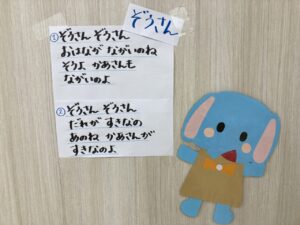 ぞうさん
① ぞうさん ぞうさん
おはなが ながいのね
そうよ かあさんも
ながいのよ
② ぞうさん ぞうさん
だれが すきなの
あのね かあさんが
すきなのよ